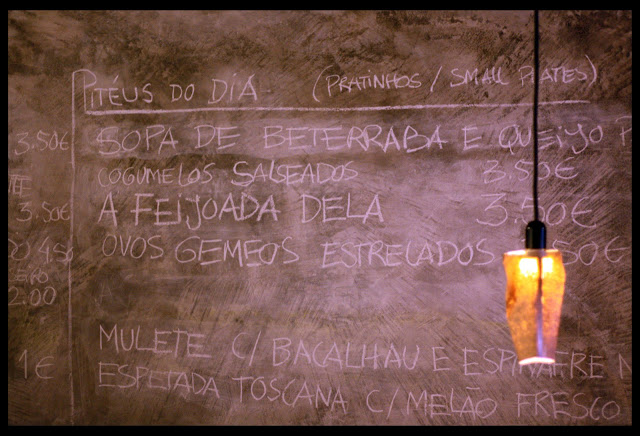 PITÉUS DO DIA (PRATINHOS / SMALL PLATES)
3.50€
SOPA DE BETERRABA E QUEIJO
COGUMELOS SALSEADOS 3.50€
3.50€
A FEIJOADA DELA 3.50€
OVOS GEMEOS ESTRELADOS 50€
2.00
MULETE C/ BACALHAU E ESPINAFRE
1€
ESPETADA TOSCANA C/ MELÃO FRESCO